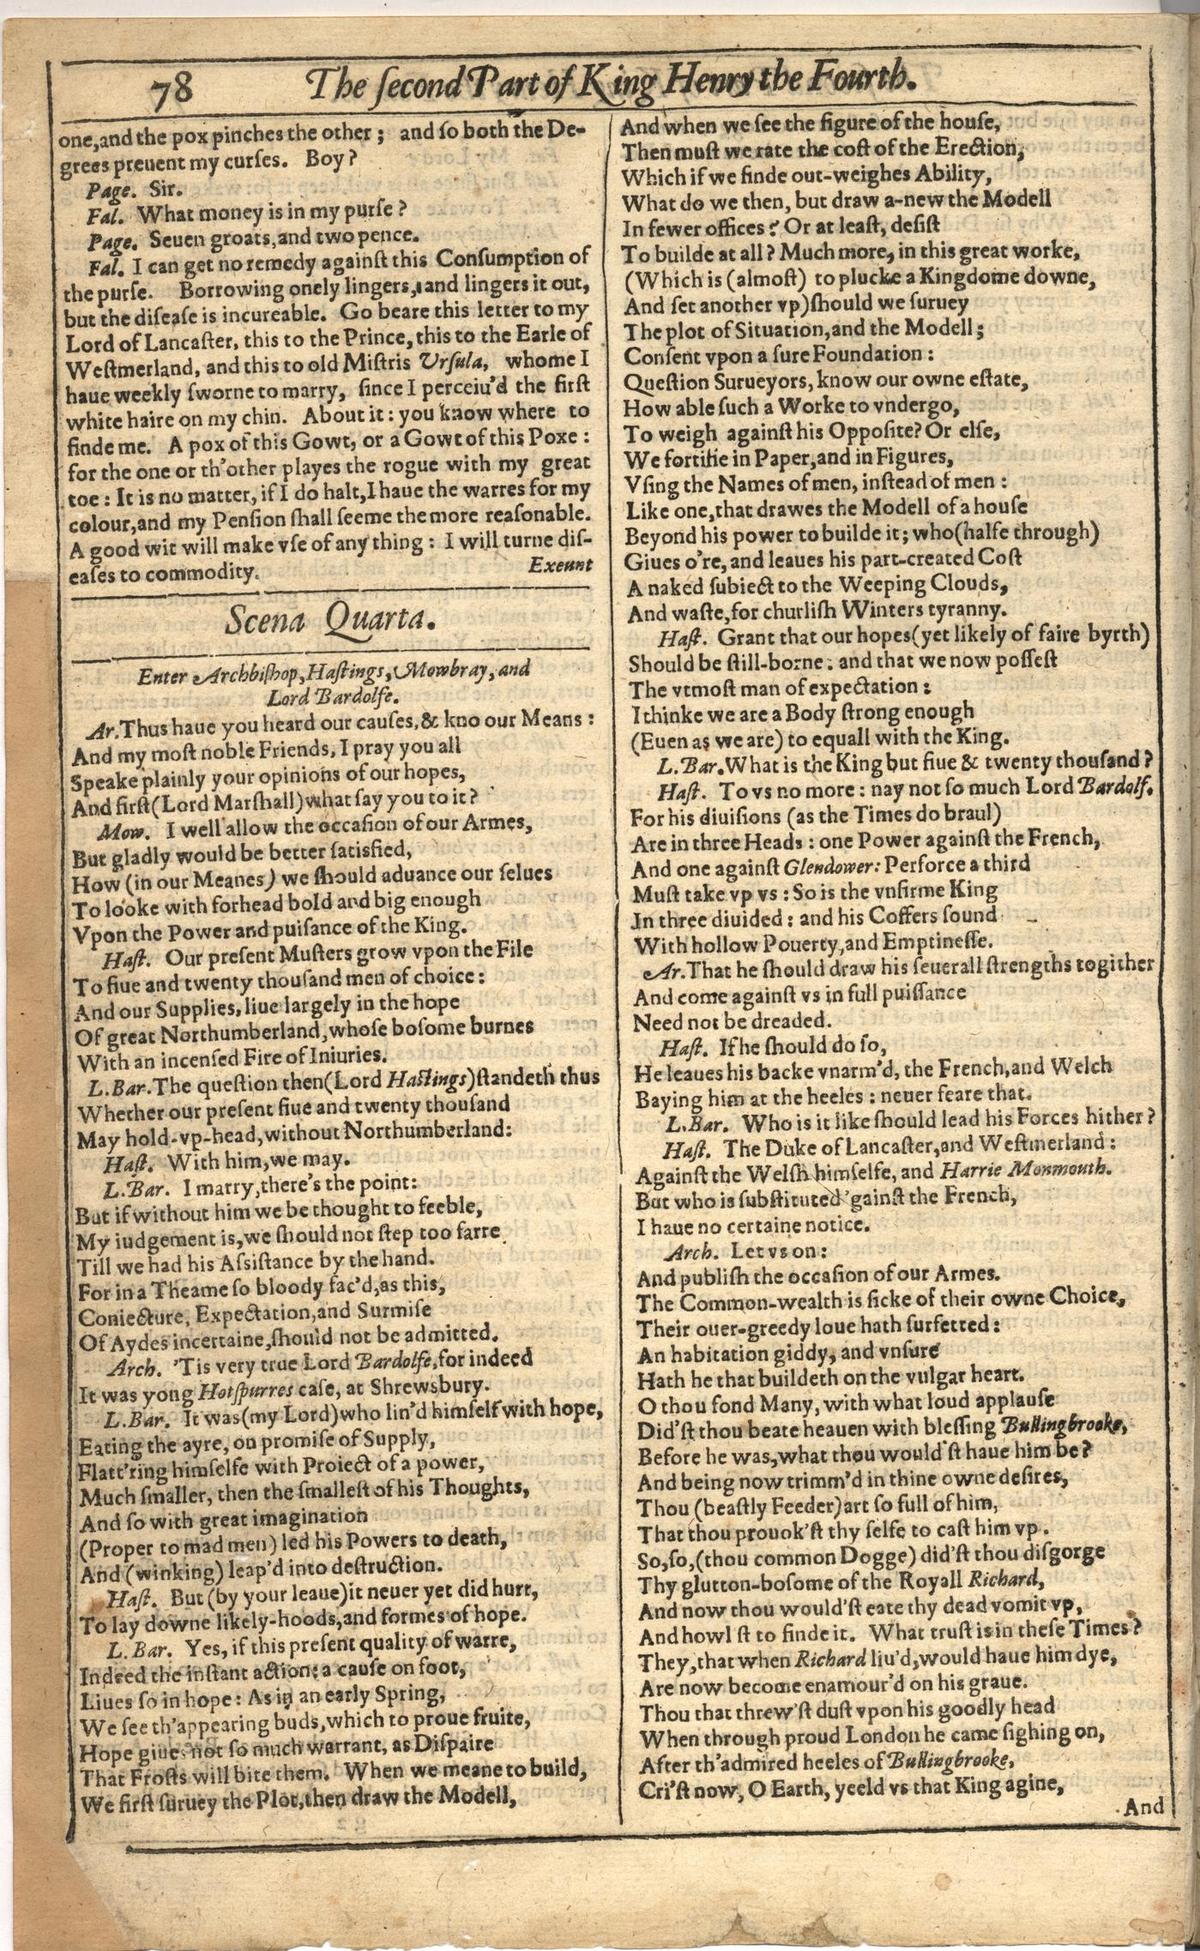 78
The ſecond Part of King Henry the Fourth.
one, and the pox pinches the other; and ſo both the De-
grees preuent my curſes. Boy?
Page. Sir.
Fal. What money is in my purſe?
Page. Seuen groats, and two pence.
Fal. I can get no remedy againſt this Conſumption of
the purſe. Borrowing onely lingers, and lingers it out,
but the diſeaſe is incureable. Go beare this letter to my
Lord of Lancaſter, this to the Prince, this to the Earle of
Weſtmerland, and this to old Miſtris Vrſula, whome I
haue weekly ſworne to marry, ſince I perceiu'd the firſt
white haire on my chin. About it: you know where to
finde me. A pox of this Gowt, or a Gowt of this Poxe:
for the one or th'other playes the rogue with my great
toe: It is no matter, if I do halt, I haue the warres for my
colour, and my Penſion ſhall ſeeme the more reaſonable.
A good wit will make vſe of any thing: I will turne diſ-
eaſes to commodity. Exeunt
Scena Quarta.
Enter Archbiſhop, Haſtings, Mowbray, and
Lord Bardolfe.
Ar. Thus haue you heard our cauſes, & kno our Means:
And my moſt noble Friends, I pray you all
Speake plainly your opinions of our hopes,
And firſt (Lord Marſhall) what ſay you to it?
Mow. I well allow the occaſion of our Armes,
But gladly would be better ſatisfied,
How (in our Meanes) we ſhould aduance our ſelues
To looke with forhead bold and big enough
Vpon the Power and puiſance of the King.
Haſt. Our preſent Muſters grow vpon the File
To fiue and twenty thouſand men of choice:
And our Supplies, liue largely in the hope
Of great Northumberland, whoſe boſome burnes
With an incenſed Fire of Iniuries.
L.Bar. The queſtion then (Lord Haſtings) ſtandeth thus
Whether our preſent fiue and twenty thouſand
May hold-vp-head, without Northumberland:
Haſt. With him, we may.
L.Bar. I marry, there's the point:
But if without him we be thought to feeble,
My iudgement is, we ſhould not ſtep too farre
Till we had his Aſſiſtance by the hand.
For in a Theame ſo bloody fac'd, as this,
Coniecture, Expectation, and Surmiſe
Of Aydes incertaine, ſhould not be admitted.
Arch. 'Tis very true Lord Bardolfe, for indeed
It was yong Hotſpurres caſe, at Shrewsbury.
L.Bar. It was (my Lord) who lin'd himſelf with hope,
Eating the ayre, on promiſe of Supply,
Flatt'ring himſelfe with Proiect of a power,
Much ſmaller, then the ſmalleſt of his Thoughts,
And ſo with great imagination
(Proper to mad men) led his Powers to death,
And (winking) leap'd into deſtruction.
Haſt. But (by your leaue) it neuer yet did hurt,
To lay downe likely-hoods, and formes of hope.
L.Bar. Yes, if this preſent quality of warre,
Indeed the inſtant action: a cauſe on foot,
Liues ſo in hope: As in an early Spring,
We ſee th'appearing buds, which to proue fruite,
Hope giues not ſo much warrant, as Diſpaire
That Froſts will bite them. When we meane to build,
We firſt ſuruey the Plot, then draw the Modell,
And when we ſee the figure of the houſe,
Then muſt we rate the coſt of the Erection,
Which if we finde out-weighes Ability,
What do we then, but draw a-new the Modell
In fewer offices? Or at leaſt, deſiſt
To builde at all? Much more, in this great worke,
(Which is (almoſt) to plucke a Kingdome downe,
And ſet another vp) ſhould we ſuruey
The plot of Situation, and the Modell;
Conſent vpon a ſure Foundation:
Queſtion Surueyors, know our owne eſtate,
How able ſuch a Worke to vndergo,
To weigh againſt his Oppoſite? Or elſe,
We fortifie in Paper, and in Figures,
Vſing the Names of men, inſtead of men:
Like one, that drawes the Modell of a houſe
Beyond his power to builde it; who (halfe through)
Giues o're, and leaues his part-created Coſt
A naked ſubiect to the Weeping Clouds,
And waſte, for churliſh Winters tyranny.
Haſt. Grant that our hopes (yet likely of faire byrth)
Should be ſtill-borne: and that we now poſſeſt
The vtmoſt man of expectation:
I thinke we are a Body ſtrong enough
(Euen as we are) to equall with the King.
L.Bar. What is the King but fiue & twenty thouſand?
Haſt. To vs no more: nay not ſo much Lord Bardolf.
For his diuiſions (as the Times do braul)
Are in three Heads: one Power againſt the French,
And one againſt Glendower: Perforce a third
Muſt take vp vs: So is the vnfirme King
In three diuided: and his Coffers ſound
With hollow Pouerty, and Emptineſſe.
Ar. That he ſhould draw his ſeuerall ſtrengths togither
And come againſt vs in full puiſſance
Need not be dreaded.
Haſt. If he ſhould do ſo,
He leaues his backe vnarm'd, the French, and Welch
Baying him at the heeles: neuer feare that.
L.Bar. Who is it like ſhould lead his Forces hither?
Haſt. The Duke of Lancaſter, and Weſtmerland:
Againſt the Welſh himſelfe, and Harrie Monmouth.
But who is ſubſtituted 'gainſt the French,
I haue no certaine notice.
Arch. Let vs on:
And publiſh the occaſion of our Armes.
The Common-wealth is ſicke of their owne Choice,
Their ouer-greedy loue hath ſurfetted:
An habitation giddy, and vnſure
Hath he that buildeth on the vulgar heart.
O thou fond Many, with what loud applauſe
Did'ſt thou beate heauen with bleſſing Bullingbrooke,
Before he was, what thou would'ſt haue him be?
And being now trimm'd in thine owne deſires,
Thou (beaſtly Feeder) art ſo full of him,
That thou prouok'ſt thy ſelfe to caſt him vp.
So, ſo, (thou common Dogge) did'ſt thou diſgorge
Thy glutton-boſome of the Royall Richard,
And now thou would'ſt eate thy dead vomit vp,
And howl'ſt to finde it. What truſt is in theſe Times?
They, that when Richard liu'd, would haue him dye,
Are now become enamour'd on his graue.
Thou that threw'ſt duſt vpon his goodly head
When through proud London he came ſighing on,
After th'admired heeles of Bullingbrooke,
Cri'ſt now, O Earth, yeeld vs that King agine,
And